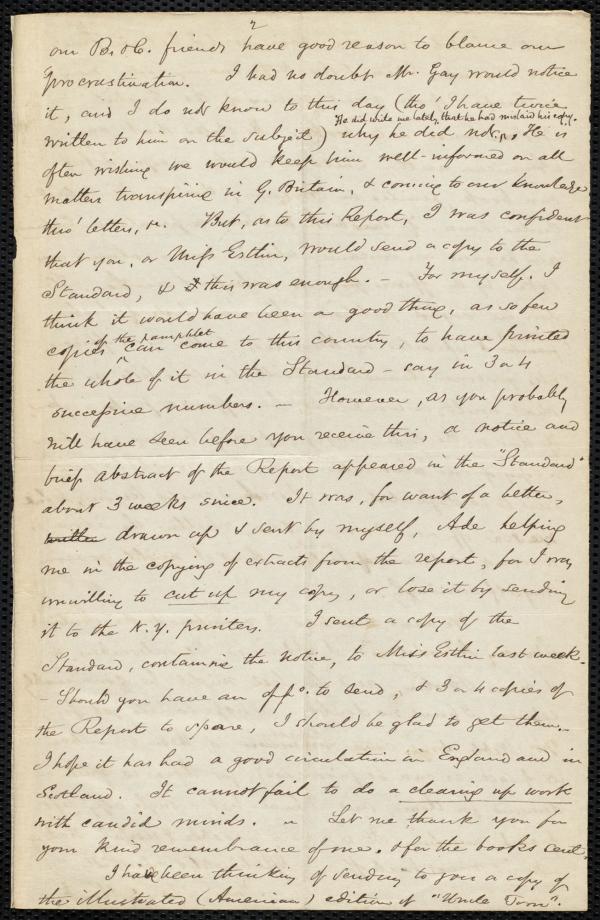 2
our B. & C. friends have good reason to blame our
procrastination. I had no doubt Mr. Gay would notice
it, and I do not know to this day (tho' I have twice
He did write me lately, that he had mislaid his copy.
written to him on the subject) why he did not. He is
often wishing we would keep him well-informed on all
matters transpiring in G. Britain, & coming to our knowledge
thro' letters, &c. But, as to this Report, I was confident
that you, or Miss Estlin, would send a copy to the
Standard, & this was enough. – For myself, I
think it would have been a good thing, as so few
of the pamphlet
copies can come to this country, to have printed
the whole of it in the Standard – say in 3 or 4
successive numbers. – However, as you probably
will have seen before you receive this, a notice and
brief abstract of the Report appeared in the "Standard"
about 3 weeks since. It was, for want of a better,
written drawn up & sent by myself, Ade helping
me in the copying of extracts from the report, for I was
unwilling to cut up my copy, or lose it by sending
it to the N.Y. printers. I sent a copy of the
Standard, containing the notice, to Miss Estlin last week.
– Should you have an oppo. to send, & 3 or 4 copies of
the Report to spare, I should be glad to get them. –
I hope it has had a good circulation in England and in
Scotland. It cannot fail to do a clearing up work
with candid minds. – Let me thank you for
your kind remembrance of me, & for the books sent.
I have been thinking of sending to you a copy of
the illustrated (American) edition of "Uncle Tom".